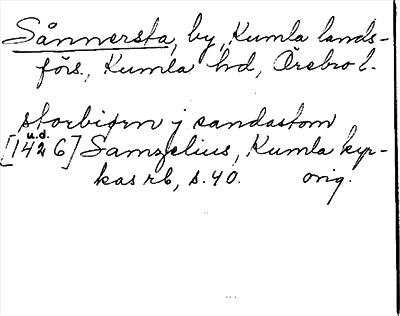 Sånnersta, by, Kumla lands-
förs., Kumla hd, Örebro l.
storbiørn j sandastom
u.d.
[1426] Samzelius, Kumla kyr-
kas rb, s. 40. orig.